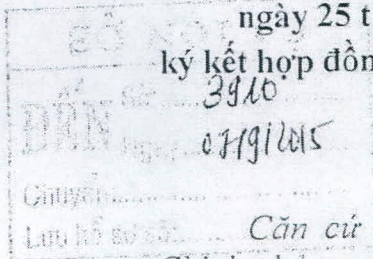 ngày 25 t
ký kết hợp đồn
ĐẾN Số: 3910
Ngày: 07/9/2015
Chuyển:
Lưu hồ sơ số:
Căn cứ